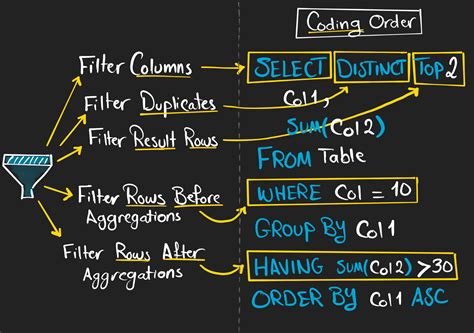 Coding Order
Filter Columns
SELECT DISTINCT TOP 2
Filter Duplicates
Col1,
Filter Result Rows
SUM(Col2)
FROM Table
Filter Rows Before
Aggregations
WHERE Col = 10
GROUP By Col1
Filter Rows After
Aggregations
HAVING SUM(Col2) > 30
ORDER BY Col1 ASC